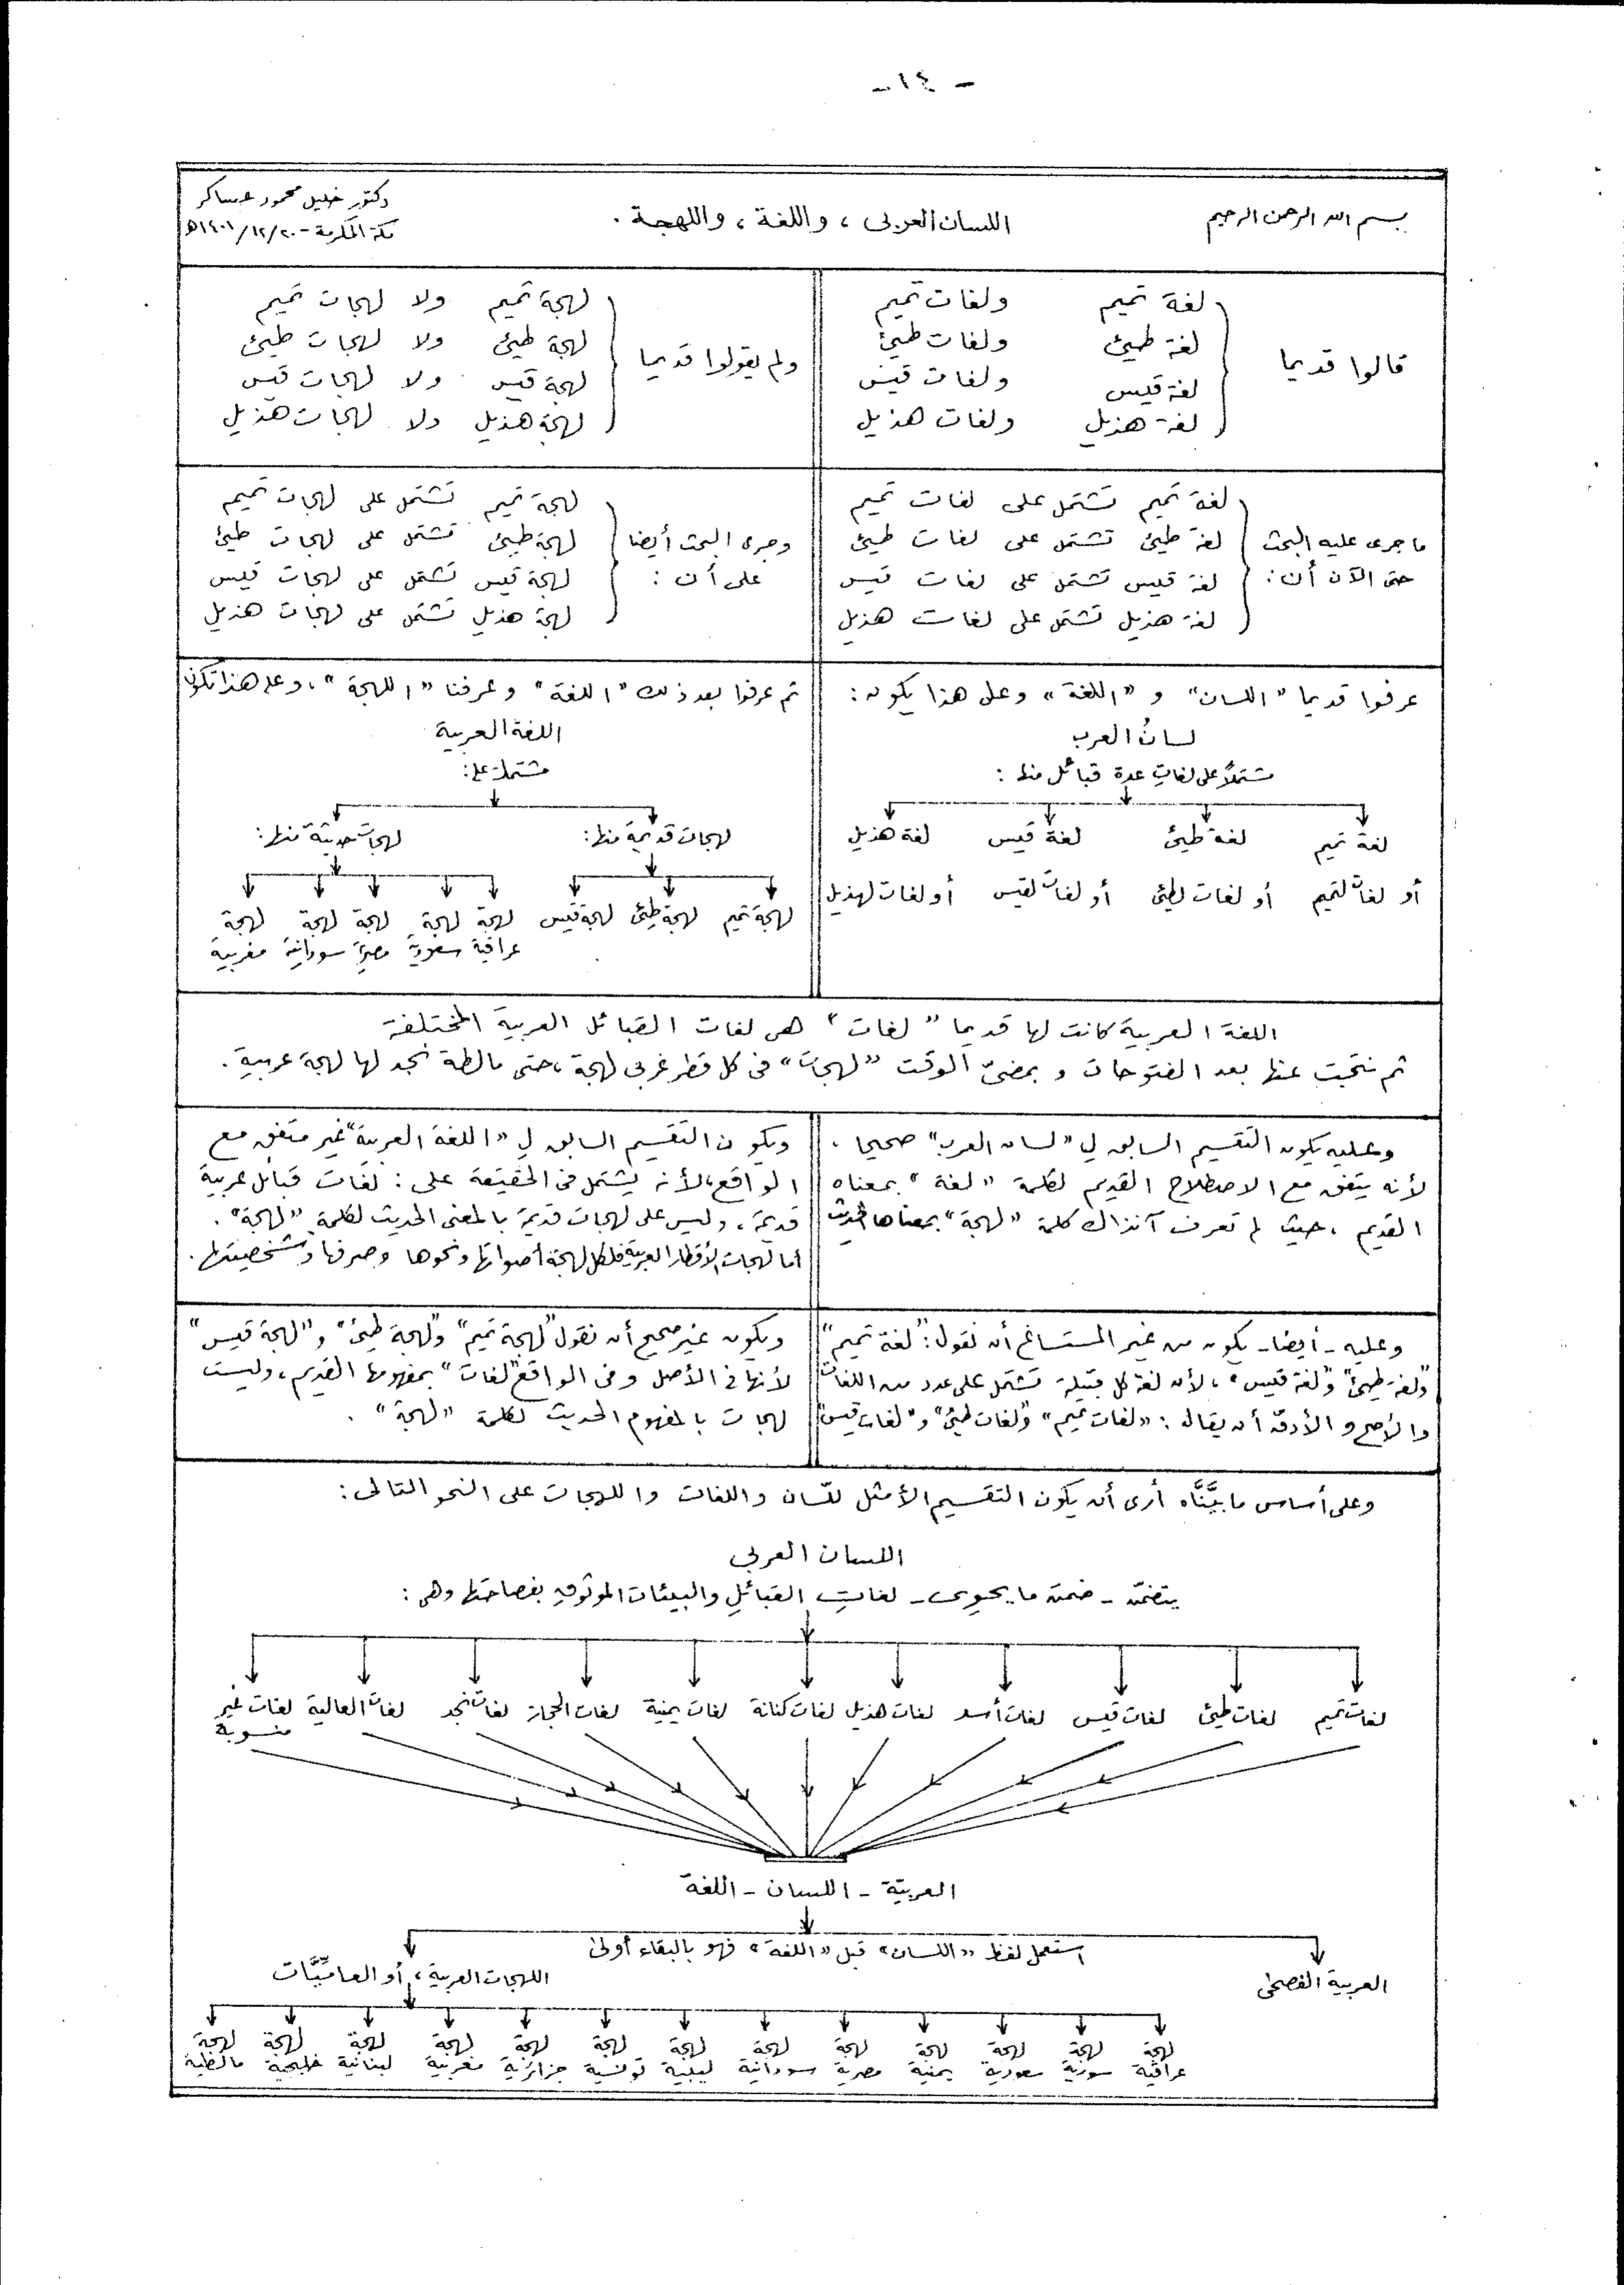 - ١٤ -
بسم الله الرحمن الرحيم
اللسان العربى ، واللغة ، واللهجة .
دكتور خليل محمود عساكر
مكة المكرمة - ٢٠/١٢/١٤٠١ﻫ
قالوا قديما
لغة تميم ولغات تميم
لغة طيئ ولغات طيئ
لغة قيس ولغات قيس
لغة هذيل ولغات هذيل
ولم يقولوا قديما
لهجة تميم ولا لهجات تميم
لهجة طيئ ولا لهجات طيئ
لهجة قيس ولا لهجات قيس
لهجة هذيل ولا لهجات هذيل
ما جرى عليه البحث
حتى الآن أن :
لغة تميم تشتمل على لغات تميم
لغة طيئ تشتمل على لغات طيئ
لغة قيس تشتمل على لغات قيس
لغة هذيل تشتمل على لغات هذيل
وجرى البحث أيضا
على أن :
لهجة تميم تشتمل على لهجات تميم
لهجة طيئ تشتمل على لهجات طيئ
لهجة قيس تشتمل على لهجات قيس
لهجة هذيل تشتمل على لهجات هذيل
عرفوا قديما "اللسان" و "اللغة" وعلى هذا يكون :
لسانُ العرب
مشتملاً على لغاتِ عدة قبائل منها :
لغة تميم لغة طيئ لغة قيس لغة هذيل
أو لغات لتميم أو لغات لطيئ أو لغات لقيس أو لغات لهذيل
ثم عرفوا بعد ذلك "اللغة" وعرفنا "اللهجة" ، وعلى هذا تكون
اللغة العربية
مشتملة على :
لهجات قديمة منها : لهجات حديثة منها :
لهجة تميم لهجة طيئ لهجة قيس لهجة لهجة لهجة لهجة لهجة
عراقية سعودية مصرية سودانية مغربية
اللغة العربية كانت لها قديما "لغات" هى لغات القبائل العربية المختلفة
ثم نتجت عنها بعد الفتوحات و بمضىّ الوقت "لهجات" فى كل قطر عربى لهجة ، حتى مالطة نجد لها لهجة عربية .
وعليه يكون التقسيم السابق لِ "لسان العرب" صحيحا ،
لأنه يتفق مع الاصطلاح القديم لكلمة "لغة" بمعناه
القديم ، حيث لم تعرف آنذاك كلمة "لهجة" بمعناها الحديث
ويكون التقسيم السابق لِ "اللغة العربية" غير متفق مع
الواقع ، لأنه يشتمل فى الحقيقة على : لغات قبائل عربية
قديمة ، وليس على لهجات قديمة بالمعنى الحديث لكلمة "لهجة" .
أما لهجات الأقطار العربية فلكل لهجة أصواتها ونحوها وصرفها وشخصيتها .
وعليه - أيضا - يكون من غير المستساغ أن نقول : "لغة تميم"
و"لغة طيئ" و"لغة قيس" ، لأن لغة كل قبيلة تشتمل على عدد من اللغات
والأصح والأدقّ أن يقال : "لغات تميم" و"لغات طيئ" و"لغات قيس"
ويكون غير صحيح أن نقول "لهجة تميم" و"لهجة طيئ" و"لهجة قيس"
لأنها فى الأصل وفى الواقع "لغات" بمفهومها القديم ، وليست
لهجات بالمفهوم الحديث لكلمة "لهجة" .
وعلى أساس ما بيَّنَّاه أرى أن يكون التقسيم الأمثل للّسان واللغات واللهجات على النحو التالى :
اللسان العربى
يتضمّن - ضمن ما يحوى - لغاتِ القبائلِ والبيئات الموثوق بفصاحتها وهى :
لغات تميم لغات طيئ لغات قيس لغات أسد لغات هذيل لغات كنانة لغات يمنية لغات الحجاز لغات نجد لغات العالية لغات غير
منسوبة
العربيّة - اللسان - اللغة
استعمل لفظ "اللسان" قبل "اللغة" فهو بالبقاء أولى
العربية الفصحى اللهجات العربية ، أو العامِّيَّات
لهجة لهجة لهجة لهجة لهجة لهجة لهجة لهجة لهجة لهجة لهجة لهجة لهجة
عراقية سورية سعودية يمنية مصرية سودانية ليبية تونسية جزائرية مغربية لبنانية خليجية مالطية